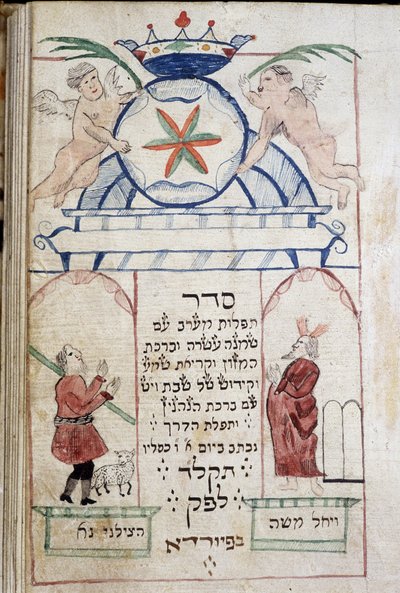 סדר
תפלות מערב עם
שמנה עשרה וברכת
המזון וקריאת שמע
וקידוש של שבת ויט
עם ברכת הנהנין
ותפלת הדרך
נכתב ביום א ו כסליו
תקלד
לפק
בפיורדא
הצילני נא
ויחל משה